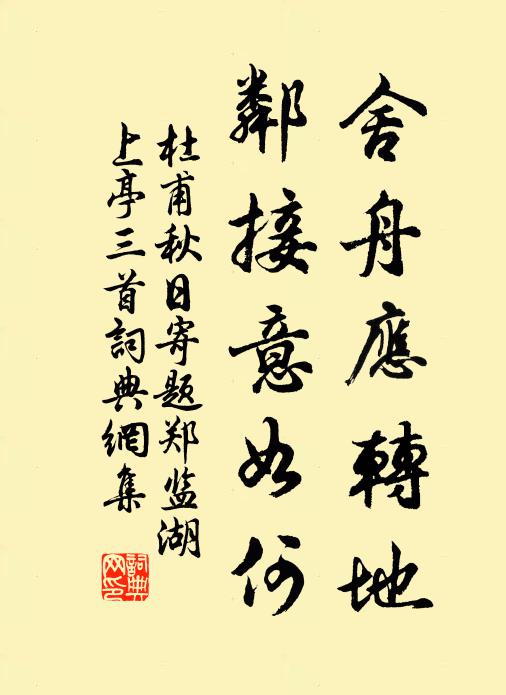 舍舟應轉地
鄰接意如何
杜甫秋日寄题郑监湖
上亭三首詞典網集
詞典网印